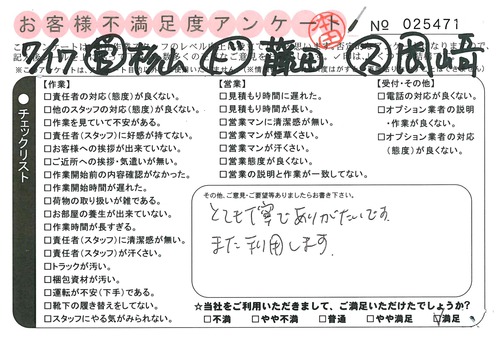 お客様不満足度アンケート
No 025471
ワイワフ 富 杉山 ド 藤田 ス 岡崎
チェックリスト
【作業】
□責任者の対応(態度)が良くない。
□他のスタッフの対応(態度)が良くない。
□作業を見ていて不安がある。
□責任者(スタッフ)に好感が持てない。
□お客様への挨拶が出来ていない。
□ご近所への挨拶・気遣いが無い。
□作業開始前の内容確認がなかった。
□作業開始時間が遅れた。
□荷物の取り扱いが雑である。
□お部屋の養生が出来ていない。
□作業時間が長すぎる。
□責任者(スタッフ)に清潔感が無い。
□責任者(スタッフ)が汗くさい。
□トラックが汚い。
□梱包資材が汚い。
□運転が不安(下手)である。
□靴下の履き替えをしてない。
□スタッフにやる気がみられない。
【営業】
□見積もり時間に遅れた。
□見積もり時間が長い。
□営業マンに清潔感が無い。
□営業マンが煙草くさい。
□営業マンが汗くさい。
□営業態度が良くない。
□営業の説明と作業が一致してない。
【受付・その他】
□電話の対応が良くない。
□オプション業者の説明
・作業が良くない。
□オプション業者の対応
(態度)が良くない。
その他、ご意見・ご要望等ありましたらお書き下さい。
とても丁寧でありがたいです。
また利用します。
☆当社をご利用いただきまして、ご満足いただけたでしょうか?
□不満 □やや不満 □普通 □やや満足 □満足